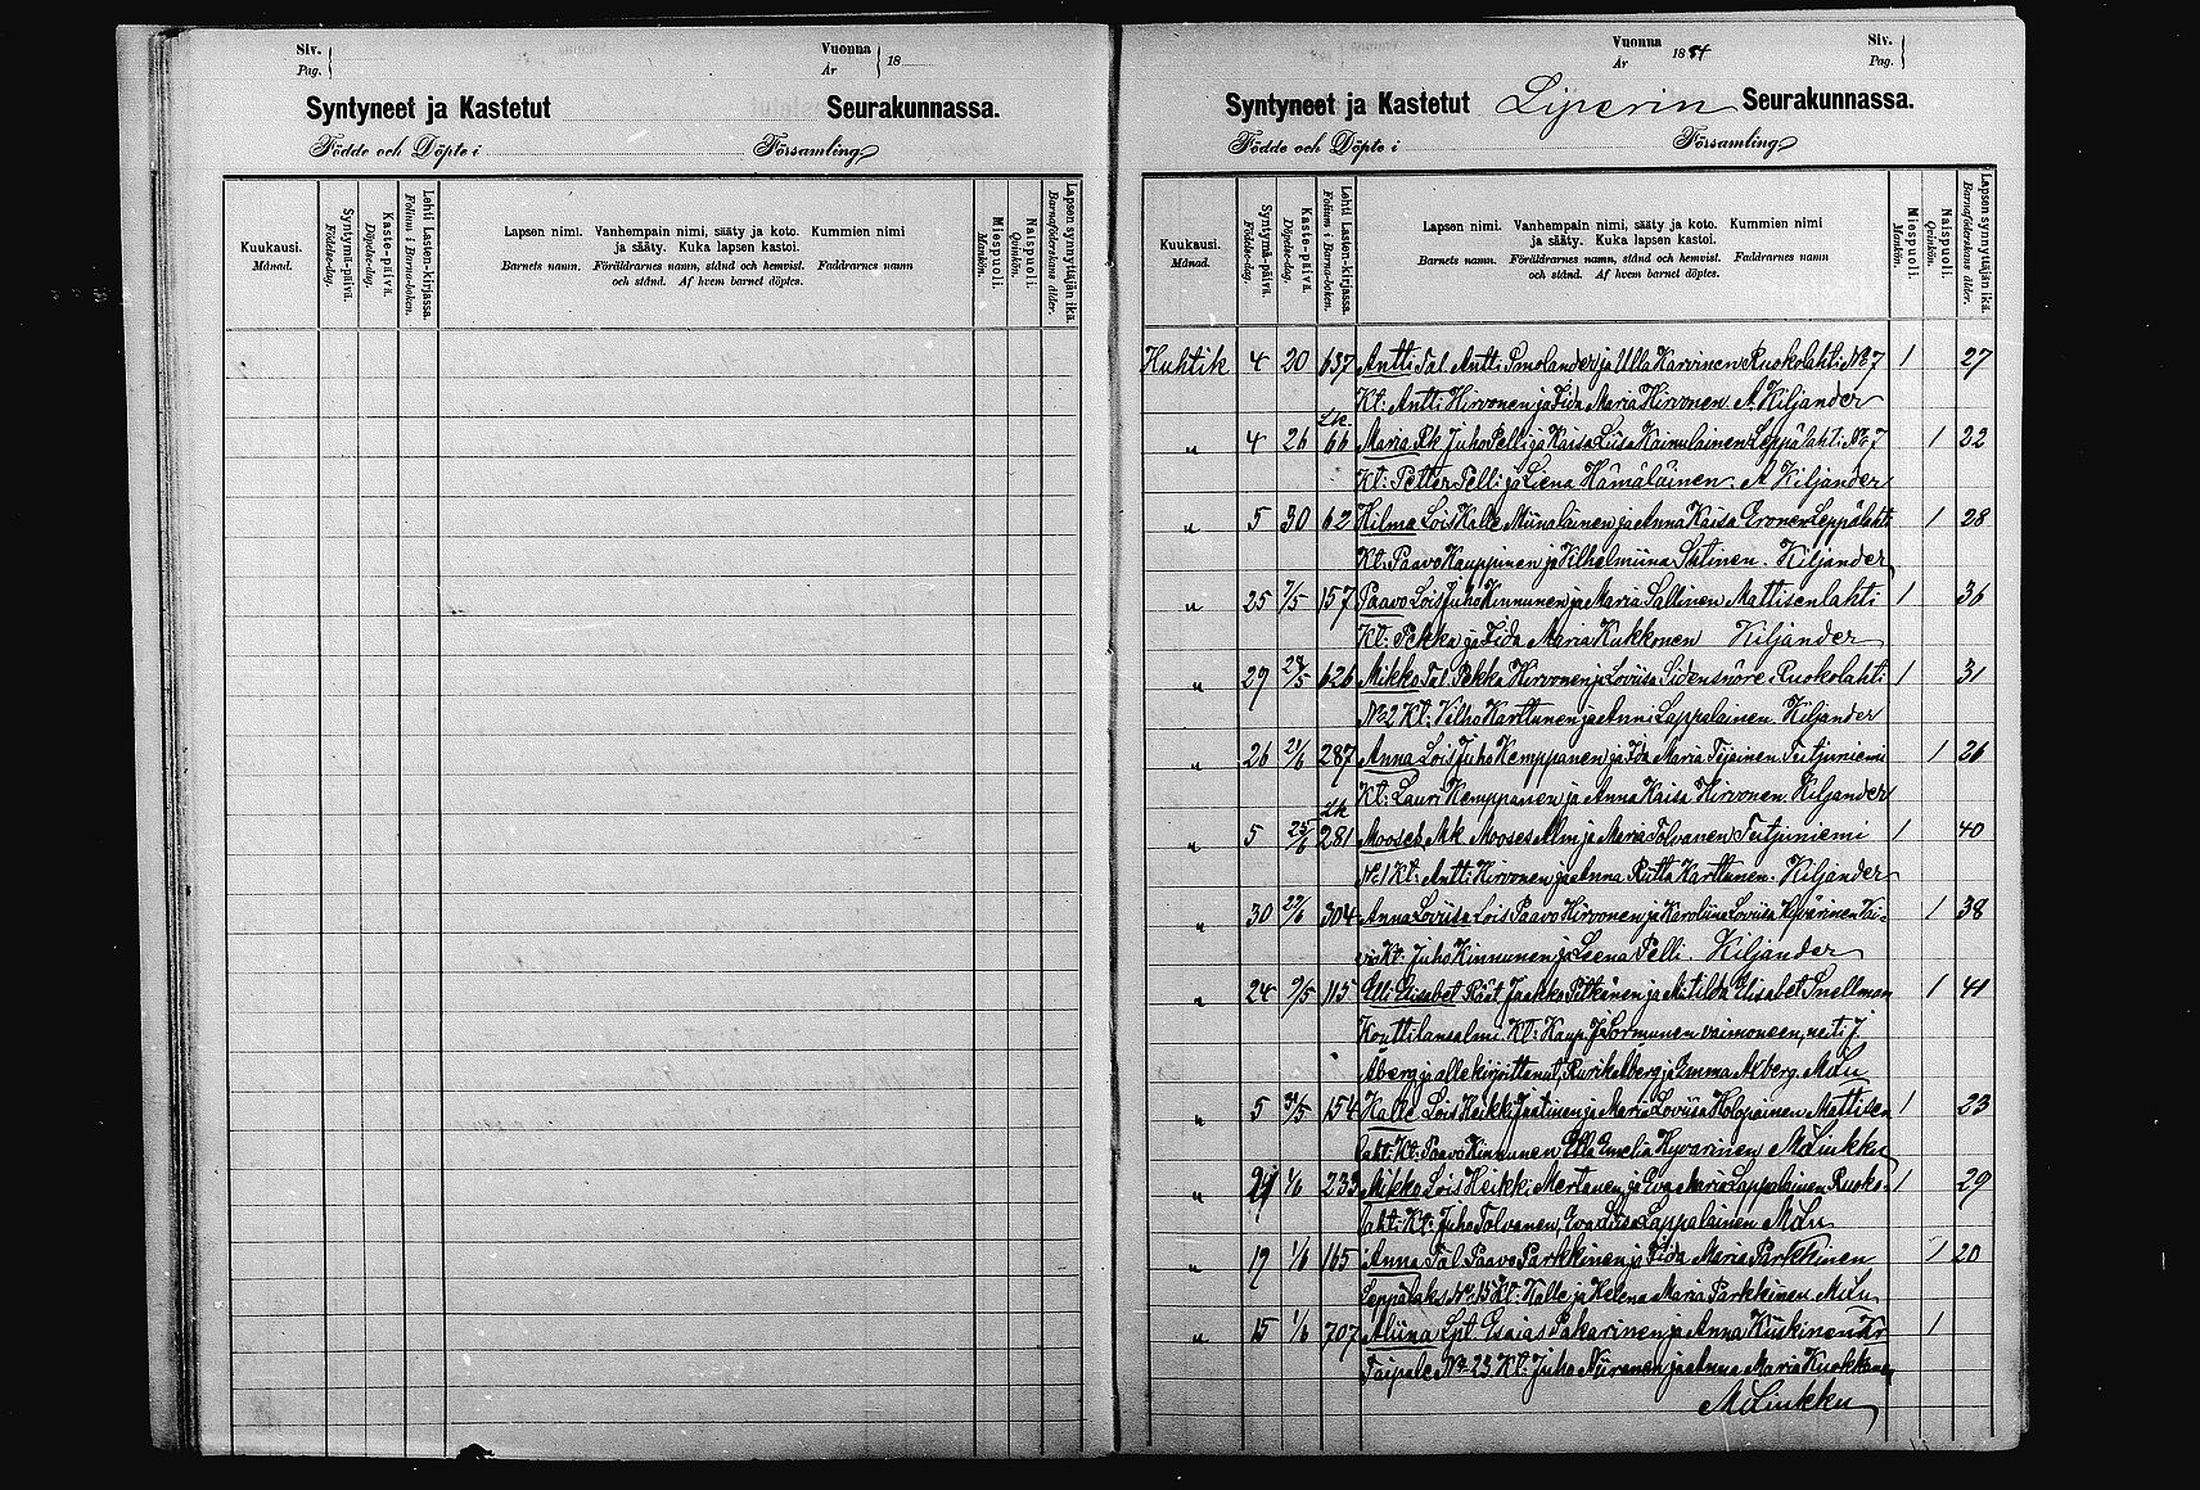 Siv.
Pag.
Vuonna
År
18
Syntyneet ja Kastetut Seurakunnassa.
Födde och Döpte i Församling
Kuukausi.
Månad.
Syntymä-päivä.
Födelse-dag.
Kaste-päivä.
Döpelse-dag.
Lehti Lasten-kirjassa.
Folium i Barna-boken.
Lapsen nimi. Vanhempain nimi, sääty ja koto. Kummien nimi
ja sääty. Kuka lapsen kastoi.
Barnets namn. Föräldrarnes namn, stånd och hemvist. Faddrarnes namn
och stånd. Af hvem barnet döptes.
Miespuoli.
Mankön.
Naispuoli.
Qvinkön.
Lapsen synnyttäjän ikä.
Barnaföderskans ålder.
Vuonna
År
1884
Siv.
Pag.
Syntyneet ja Kastetut Liperin Seurakunnassa.
Födde och Döpte i Församling
Kuukausi.
Månad.
Syntymä-päivä.
Födelse-dag.
Kaste-päivä.
Döpelse-dag.
Lehti Lasten-kirjassa.
Folium i Barna-boken.
Lapsen nimi. Vanhempain nimi, sääty ja koto. Kummien nimi
ja sääty. Kuka lapsen kastoi.
Barnets namn. Föräldrarnes namn, stånd och hemvist. Faddrarnes namn
och stånd. Af hvem barnet döptes.
Miespuoli.
Mankön.
Naispuoli.
Qvinkön.
Lapsen synnyttäjän ikä.
Barnaföderskans ålder.
Huhtik 4 20 637 Antti Tal. Antti Smolander ja Ulla Karvinen Ruokolahti No 7 1 27
Kt: Antti Hirvonen ja Iida Maria Hirvonen A. Kiljander
Lk.
" 4 26 66 Maria Rk Juho Pelli ja Kaisa Liisa Kainulainen Leppälahti No 7 1 22
Kt: Petter Pelli ja Liena Hämäläinen. A Kiljander
" 5 30 62 Hilma Lois Kalle Miinalainen ja Anna Kaisa Eronen Leppälahti 1 28
Kt: Paavo Kauppinen ja Vilhelmiina Kiljander
" 25 7/5 157 Paavo Lois Juho Kinnunen ja Maria Sallinen Mattisenlahti 1 36
Kt: Pekka ja Iida Maria Kukkonen Kiljander
" 29 28/5 626 Mikko Tal. Pekka Hirvonen ja Loviisa Sidensnöre Ruokolahti 1 31
No 2 Kt: Vilho Karttunen ja Anni Lappalainen. Kiljander
" 26 21/6 287 Anna Lois Juho Kemppanen ja Ida Maria Teijainen Tutjuniemi 1 26
Kt: Lauri Kemppanen ja Anna Kaisa Hirvonen. Kiljander
Lk
" 5 25/6 281 Mooses Mk. Mooses Alm ja Maria Tolvanen Tutjuniemi 1 40
No 1 Kt: Antti Hirvonen ja Anna Riitta Karttunen. Kiljander
" 30 27/6 304 Anna Loviisa Lois Paavo Hirvonen ja Karoliina Loviisa Hyvärinen Vai= 1 38
vio Kt: Juho Kinnunen ja Leena Pelli. Kiljander
" 24 9/5 115 Elli Elisabet Räät. Jaakko Pitkänen ja Matilda Elisabet Snellman 1 41
Kt: Kaup. J. Sormunen vaimoneen, neiti J.
Åberg ja allekirjoittanut, Rurik Åberg ja Emma Alberg. MLu
" 5 31/5 154 Kalle Lois Heikki Jaatinen ja Maria Loviisa Holopainen Mattisen 1 23
lahti Kt: Paavo Kinnunen Ulla Emelia Hyvarinen M Linkku
" 24 1/6 233 Mikko Lois Heikki Mertanen ja Eva Maria Lappalainen Ruoko- 1 29
lahti Kt: Juho Tolvanen, Eva Liisa Lappalainen MLu
" 19 1/6 165 Anna Tal. Paavo Parkkinen ja Iida Maria Parkkinen 1 20
Leppälaks No 15 Kt: Kalle ja Helena Maria Parkkinen MLu
" 15 1/6 707 Aliina Lpt. Esaias Pakarinen ja Anna Kiiskinen Kr 1
Taipale No 23 Kt: Juho Niiranen ja Anna Maria Kuokkanen
M Linkku